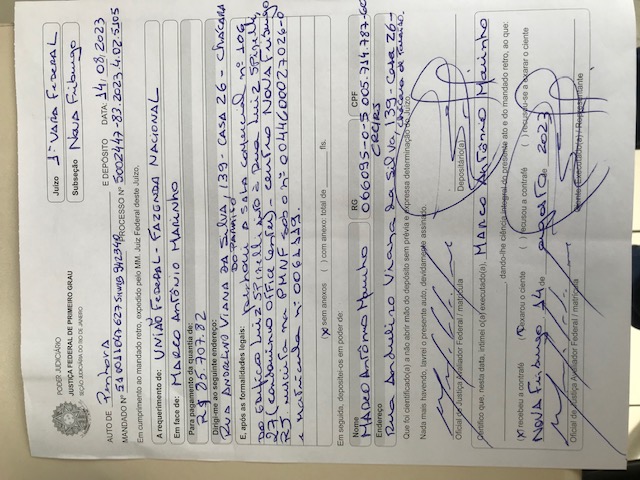 PODER JUDICIÁRIO
JUSTIÇA FEDERAL DE PRIMEIRO GRAU
SEÇÃO JUDICIÁRIA DO RIO DE JANEIRO
Juízo 1ª VARA FEDERAL
Subseção NOVA FRIBURGO
AUTO DE Penhora E DEPÓSITO DATA: 14/08/2023
MANDADO Nº PROCESSO Nº 5002447-83.2023.4.02.5105
Em cumprimento ao mandado retro, expedido pelo MM. Juiz Federal deste Juízo.
A requerimento de: UNIÃO FEDERAL - FAZENDA NACIONAL
Em face de: MARCO ANTÔNIO MARINHO
Para pagamento da quantia de:
R$ 85.707,82
Dirigi-me ao seguinte endereço:
RUA ANDRELINO VIANA DA SILVA, 139 - CASA 26 - CHÁCARA
DO PARAÍSO
E, após as formalidades legais: Penhorei a sala comercial nº 106
do Edifício Luiz Spinelli, sito à Rua Luiz Spinelli,
27 (condomínio Office Center) - centro Nova Friburgo
RJ, inscrita na PMNF sob o nº
e matrícula nº
(x) sem anexos ( ) com anexo: total de fls.
Em seguida, depositei-os em poder de:
Nome MARCO ANTÔNIO Marinho RG 066095-0-5 CPF 005.714.787-60
CRC/RJ
Endereço Rua Andrelino Viana da Silva, 139 - Casa 26 -
chácara do Paraíso.
Que foi cientificado(a) a não abrir mão do depósito sem prévia e expressa determinação do Juízo.
Nada mais havendo, lavrei o presente auto, devidamente assinado.
Oficial de Justiça Avaliador Federal / matrícula
Depositário(a)
Certifico que, nesta data, intimei o(a) executado(a), MARCO ANTÔNIO MARINHO
dando-lhe ciência integral do presente ato e do mandado retro, ao que:
(x) recebeu a contrafé (x) exarou o ciente ( ) recusou a contrafé ( ) recusou-se a exarar o ciente
NOVA FRIBURGO 14 de agosto de 2023
Oficial de Justiça Avaliador Federal / matrícula
Ciente Executado(a) / Representante